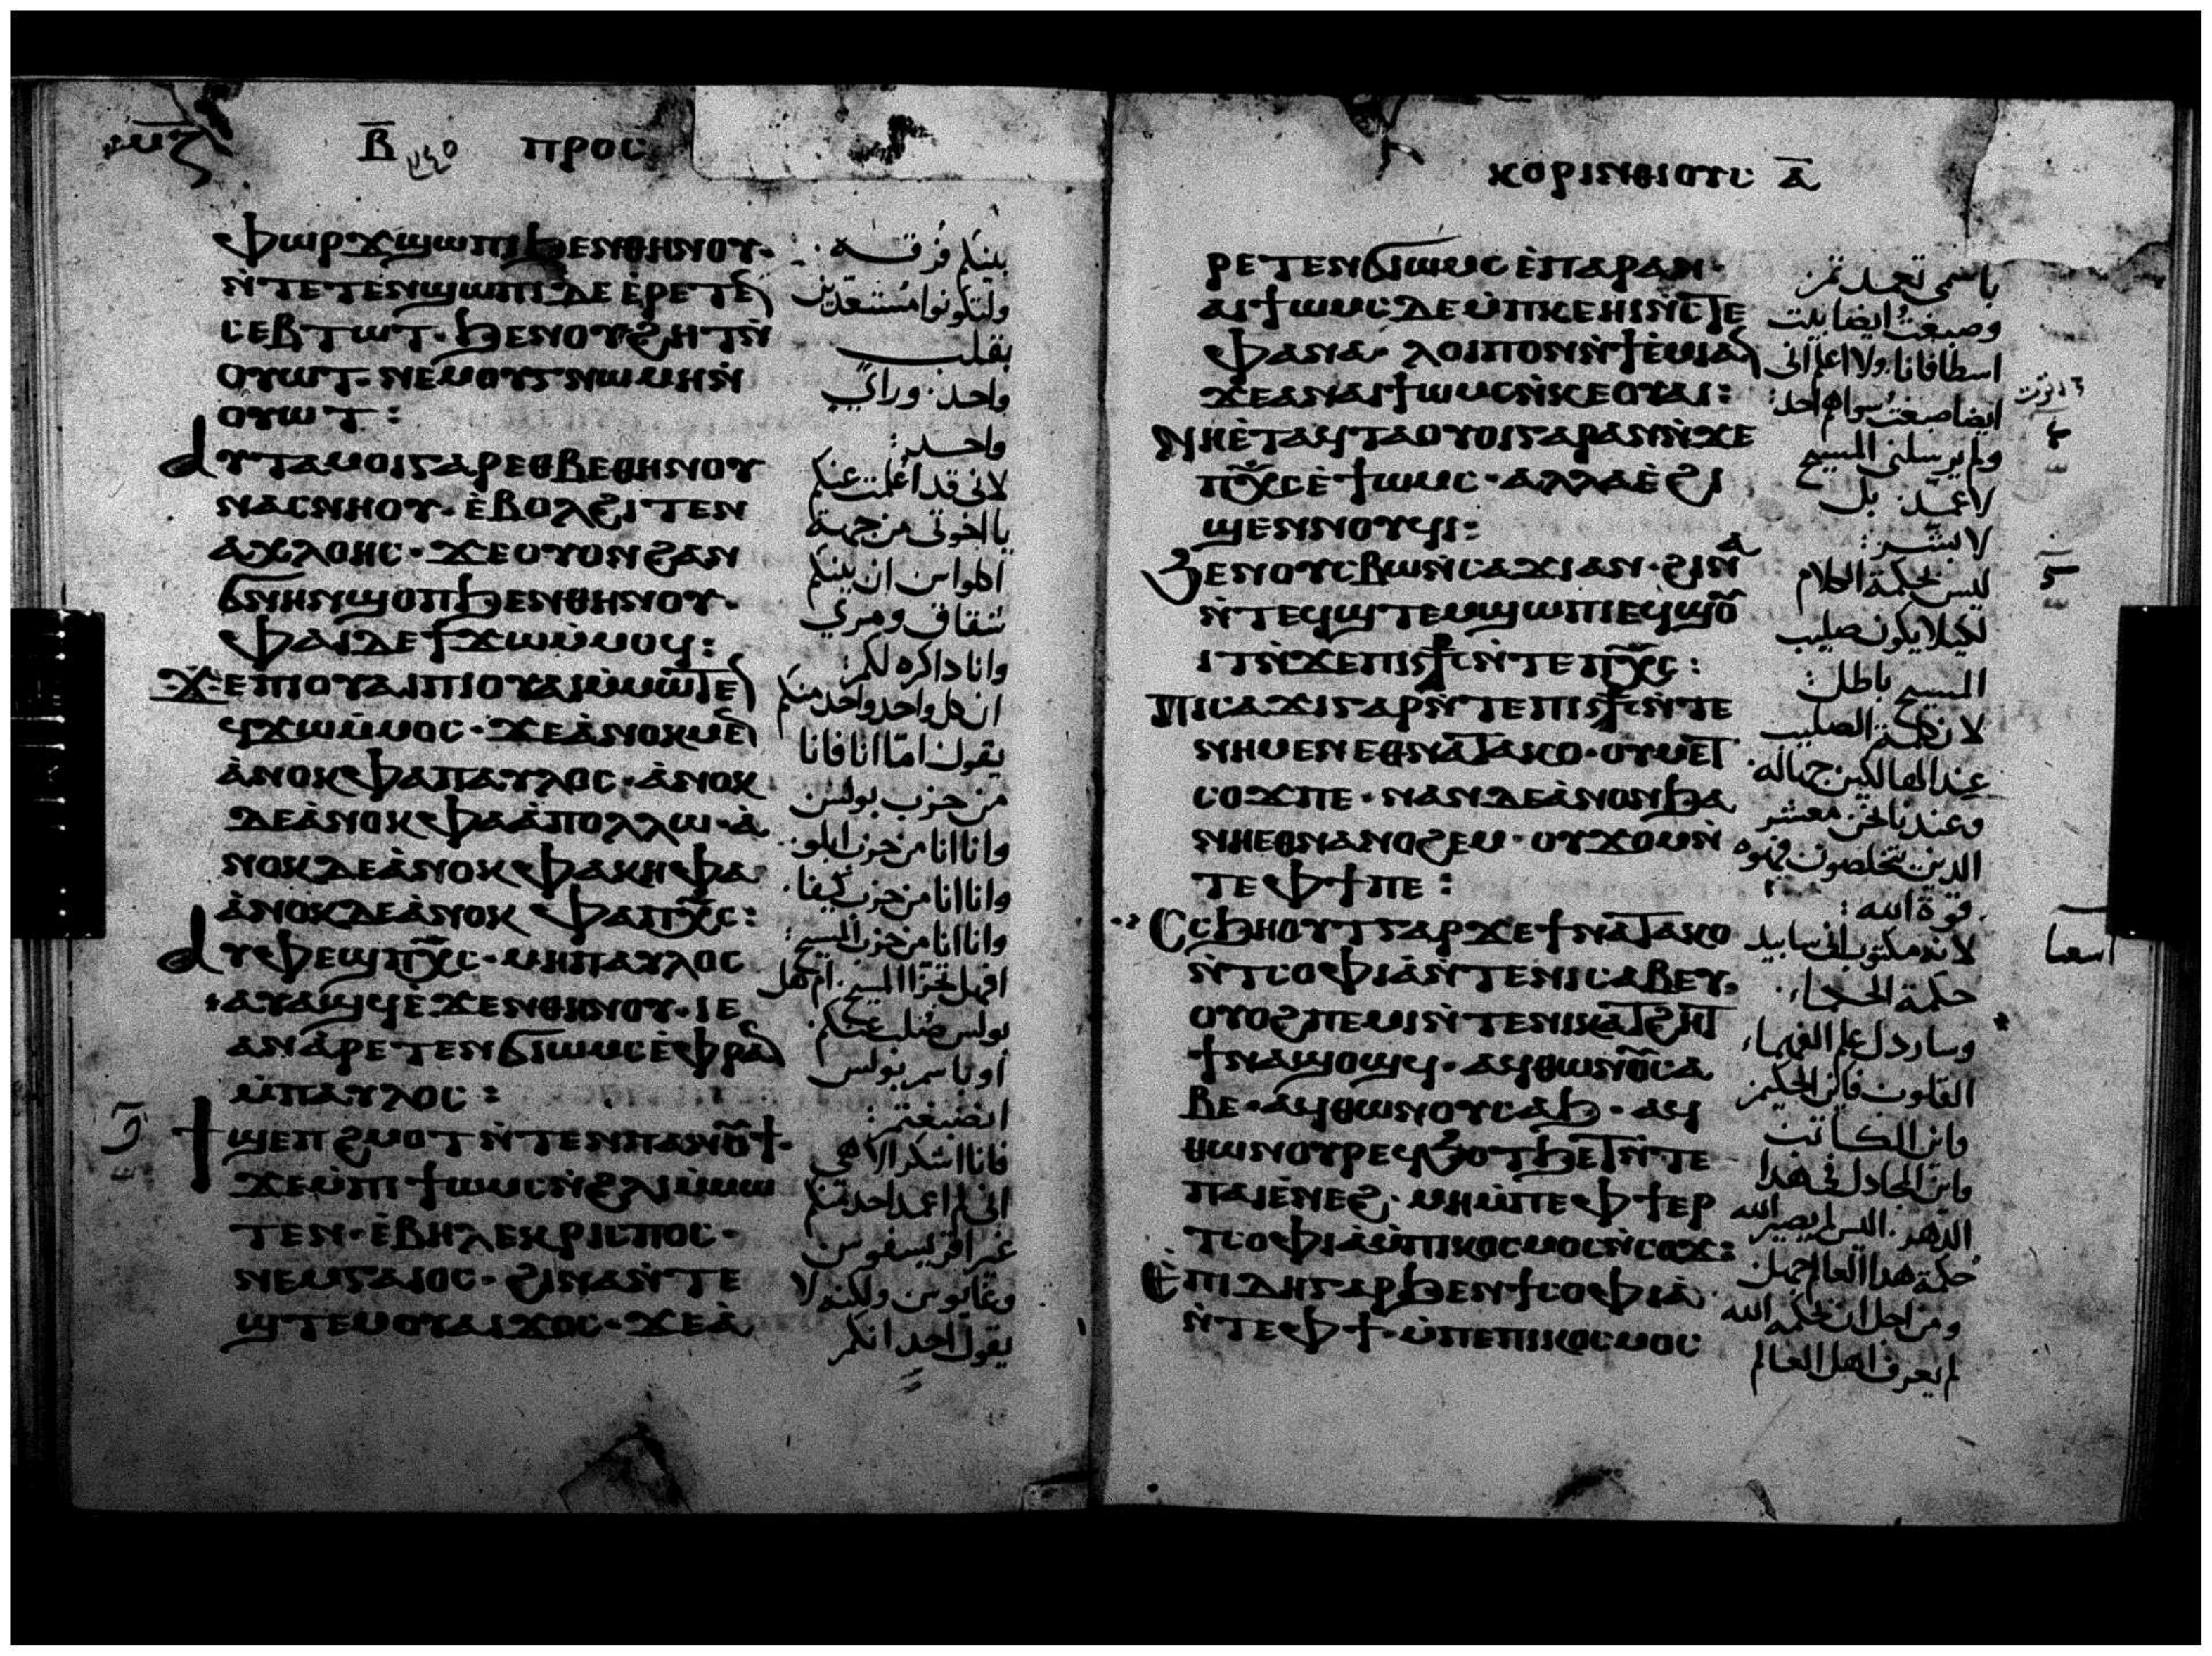 Ⲃ̅ ⲡⲣⲟⲥ
ⲫⲱⲣϫϣⲱⲡⲓϧⲉⲛⲑⲏⲛⲟⲩ·
ⲛ̀ⲧⲉⲧⲉⲛϣⲱⲡⲓⲇⲉⲉ̀ⲣⲉⲧⲉⲛ
ⲥⲉⲃⲧⲱⲧ·ϧⲉⲛⲟⲩϩⲏⲧⲛ̀
ⲟⲩⲱⲧ·ⲛⲉⲙⲟⲩⲅⲛⲱⲙⲏⲛ̀
ⲟⲩⲱⲧ:
ⲁⲩⲧⲁⲙⲟⲓⲅⲁⲣⲉⲑⲃⲉⲑⲏⲛⲟⲩ
ⲛⲁⲥⲛⲏⲟⲩ·ⲉ̀ⲃⲟⲗϩⲓⲧⲉⲛ
ⲁⲭⲗⲟⲏⲥ·ϫⲉⲟⲩⲟⲛϩⲁⲛ
ϭⲛⲏⲛϣⲟⲡϧⲉⲛⲑⲏⲛⲟⲩ·
ⲫⲁⲓⲇⲉϯϫⲱⲙ̀ⲙⲟϥ:
ϫⲉⲡⲓⲟⲩⲁⲓⲡⲓⲟⲩⲁⲓⲙ̀ⲙⲱⲧⲉⲛ
ϥϫⲱⲙ̀ⲙⲟⲥ·ϫⲉⲁ̀ⲛⲟⲕⲙⲉⲛ
ⲁ̀ⲛⲟⲕⲫⲁⲡⲁⲩⲗⲟⲥ·ⲁ̀ⲛⲟⲕ
ⲇⲉⲁ̀ⲛⲟⲕⲫⲁⲁ̀ⲡⲟⲗⲗⲱ·ⲁ̀
ⲛⲟⲕⲇⲉⲁ̀ⲛⲟⲕⲫⲁⲕⲏⲫⲁ·
ⲁ̀ⲛⲟⲕⲇⲉⲁ̀ⲛⲟⲕ ⲫⲁⲡⲭ̅ⲥ:
ⲁⲩⲫⲉϣⲡⲭ̅ⲥ·ⲙⲏⲡⲁⲩⲗⲟⲥ
ⲁⲩⲁϣϥⲉ̀ϫⲉⲛⲑⲏⲛⲟⲩ·ⲓⲉ
ⲁⲛⲁ̀ⲣⲉⲧⲉⲛϭⲓⲱⲙⲥⲉ̀ⲫⲣⲁⲛ
ⲙ̀ⲡⲁⲩⲗⲟⲥ:
ϯϣⲉⲡϩⲙⲟⲧⲛ̀ⲧⲉⲛⲡⲁⲛⲟⲩϯ·
ϫⲉⲙ̀ⲡⲓϯⲱⲙⲥⲛ̀ϩⲗⲓⲙ̀ⲙⲱ
ⲧⲉⲛ·ⲉ̀ⲃⲏⲗⲉⲕⲣⲓⲥⲡⲟⲥ·
ⲛⲉⲙⲅⲁⲓⲟⲥ·ϩⲓⲛⲁⲛ̀ⲧⲉ
ϣⲧⲉⲙⲟⲩⲁⲓϫⲟⲥ·ϫⲉⲁ̀
بينكم فرقه
ولتكونوا مستعدين
بقلب
واحد· وراي
واحد:
لاني قد اعلمت عنكم
يا اخوتي من جهة
اخلواس ان بينكم
شقاق ومري
وانا ذاكره لكم:
ان كل واحد واحد منكم
يقول اما انا فانا
من حزب بولس
وانا انا من حزب ابلو·
وانا انا من حزب كيفا·
وانا انا من حزب المسيح:
افهل تجزا المسيح· ام هل
بولس صلب عنكم·
او باسم بولس
انصبغتم:
فانا اشكر الاهي
اني لم اعمد احد منكم
غير اقريسفوس
وغايوس ولكنه لا
يقول احد انكم
ⲕⲟⲣⲓⲛⲑⲓⲟⲩⲥ ⲁ̅
ⲣⲉⲧⲉⲛϭⲓⲱⲙⲥⲉ̀ⲡⲁⲣⲁⲛ·
ⲁⲓϯⲱⲙⲥⲇⲉⲙ̀ⲡⲕⲉⲏⲓⲛ̀ⲥⲧⲉ
ⲫⲁⲛⲁ·ⲗⲟⲓⲡⲟⲛⲛ̀ϯⲉ̀ⲙⲓⲁⲛ
ϫⲉⲁⲛⲁⲓϯⲱⲙⲥⲛ̀ⲕⲉⲟⲩⲁⲓ:
ⲛⲏⲉ̀ⲧⲁϥⲧⲁⲟⲩⲟⲓⲅⲁⲣⲁⲛⲛ̀ϫⲉ
ⲡⲭ̅ⲥⲉ̀ϯⲱⲙⲥ·ⲁⲗⲗⲁⲉ̀ϩⲓ
ϣⲉⲛⲛⲟⲩϥⲓ:
ϧⲉⲛⲟⲩⲥⲃⲱⲛ̀ⲥⲁϫⲓⲁⲛ·ϩⲓⲛⲁ
ⲛ̀ⲧⲉϥϣⲧⲉⲙϣⲱⲡⲓⲉϥϣⲟⲩ
ⲓⲧⲛ̀ϫⲉⲡⲓⲥ⳨ⲥⲛ̀ⲧⲉⲡⲭ̅ⲥ:
ⲡⲓⲥⲁϫⲓⲅⲁⲣⲛ̀ⲧⲉⲡⲓⲥ⳨ⲥⲛ̀ⲧⲉ
ⲛⲏⲙⲉⲛⲉⲑⲛⲁⲧⲁⲕⲟ·ⲟⲩⲙⲉⲧ
ⲥⲟϫⲡⲉ·ⲛⲁⲛⲇⲉⲁ̀ⲛⲟⲛϧⲁ
ⲛⲏⲉⲑⲛⲁⲛⲟϩⲉⲙ·ⲟⲩϫⲟⲙⲛ̀
ⲧⲉⲫϯⲡⲉ:
ⲥⲥϧⲏⲟⲩⲧⲅⲁⲣϫⲉϯⲛⲁⲧⲁⲕⲟ
ⲛ̀ⲧⲥⲟⲫⲓⲁ̀ⲛ̀ⲧⲉⲛⲓⲥⲁⲃⲉⲩ·
ⲟⲩⲟϩⲡⲉⲙⲓⲛ̀ⲧⲉⲛⲓⲕⲁⲧϩⲏⲧ
ϯⲛⲁϣⲟϣϥ·ⲁϥⲑⲱⲛⲟⲩⲥⲁ
ⲃⲉ·ⲁϥⲑⲱⲛⲟⲩⲥⲁϧ·ⲁϥ
ⲑⲱⲛⲟⲩⲣⲉϥϧⲟⲧϧⲉⲧⲛ̀ⲧⲉ
ⲡⲁⲓⲉ̀ⲛⲉϩ·ⲙⲏⲙ̀ⲡⲉⲫϯⲉⲣ
ⲧⲥⲟⲫⲓⲁ̀ⲙ̀ⲡⲓⲕⲟⲥⲙⲟⲥⲛ̀ⲥⲟϫ:
ⲉ̀ⲡⲓⲇⲏⲅⲁⲣϧⲉⲛϯⲥⲟⲫⲓⲁ̀
ⲛ̀ⲧⲉⲫϯ·ⲙ̀ⲡⲉⲡⲓⲕⲟⲥⲙⲟⲥ
باسمي تعمدتم
وصبغت ايضا بيت
اسطافانا· ولا اعلم اني
ايضا صبغت سواهم احد:
ولم يرسلني المسيح
لاعمد· بل
لابشر:
ليس بحكمة الكلام
لكيلا يكون صليب
المسيح باطل:
لان كلمة الصليب
عند الهالكين جهاله·
وعندنا نحن معشر
الدين نتخلصون فهوه
قوة الله:
لانه مكتوب اني سابيد
حكمة الحكما،
وسارذل علم الفهماء،
فاين الحكيم
واين الكاتب
واين المجادل في هدا
الدهر· اليس لم يصير الله
حكمة هدا العالم جهل:
ومن اجل ان بحكمة الله
لم يعرف اهل العالم
اشعيا